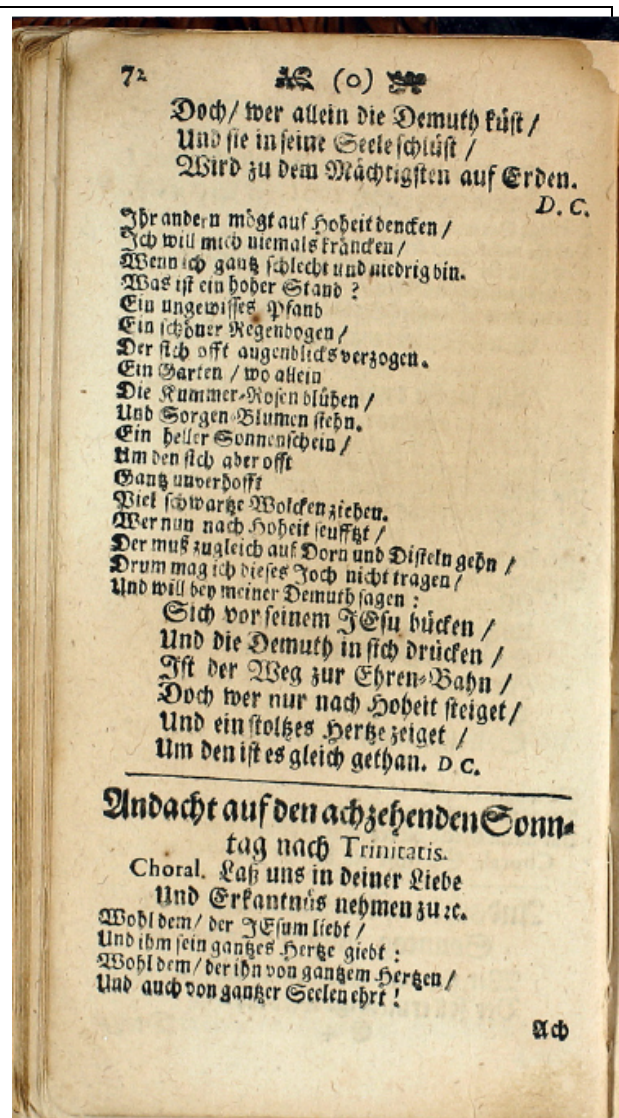 72 (o)
Doch/ wer allein die Demuth küst /
Und sie in seine Seele schlüst /
Wird zu dem Mächtigsten auf Erden.
D. C.
Ihr andern mögt auf Hoheit dencken /
Ich will mich niemals kräncken /
Wenn ich gantz schlecht und niedrig bin.
Was ist ein hoher Stand ?
Ein ungewisses Pfand
Ein schöner Regenbogen /
Der sich offt augenblicks verzogen.
Ein Garten / wo allein
Die Kummer-Rosen blühen /
Und Sorgen-Blumen stehn.
Ein heller Sonnenschein /
Um den sich aber offt
Gantz unverhofft
Viel schwartze Wolcken ziehen.
Wer nun nach Hoheit seufftzt /
Der muß zugleich auf Dorn und Disteln gehn /
Drum mag ich dieses Joch nicht tragen /
Und will bey meiner Demuth sagen :
Sich vor seinem JEsu bücken /
Und die Demuth in sich drücken /
Ist der Weg zur Ehren-Bahn /
Doch wer nur nach Hoheit steiget /
Und ein stoltzes Hertze zeiget /
Um den ist es gleich gethan. D C.
Andacht auf den achzehenden Sonn-
tag nach Trinitatis.
Choral. Laß uns in deiner Liebe
Und Erkantnüs nehmen zu ꝛc.
Wohl dem/ der JEsum liebt /
Und ihm sein gantzes Hertze giebt :
Wohl dem/ der ihn von gantzem Hertzen /
Und auch von gantzer Seelen ehrt !
Ach